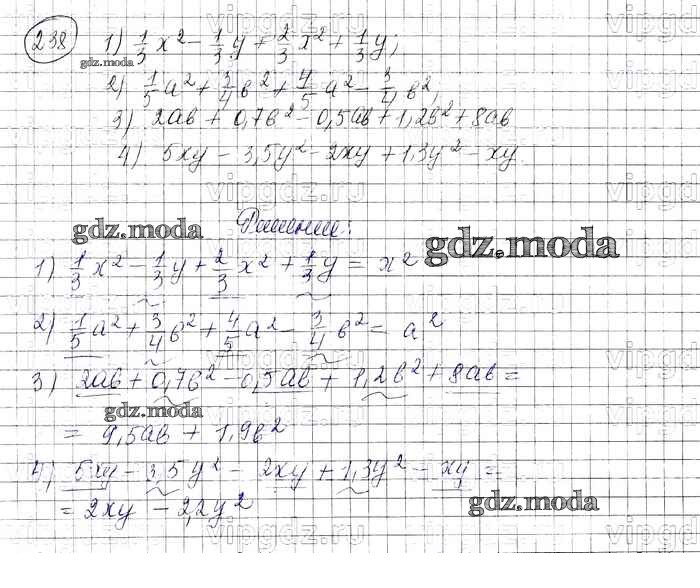 238 1) 1/3 x² - 1/3 y + 2/3 x² + 1/3 y;
gdz.moda
2) 1/5 a² + 3/4 b² + 4/5 a² - 3/4 b²,
3) 2ab + 0,7b² - 0,5ab + 1,2b² + 8ab
4) 5xy - 3,5y² - 2xy + 1,3y² - xy.
vipgdz.ru
gdz.moda Решение: gdz.moda
1) 1/3 x² - 1/3 y + 2/3 x² + 1/3 y = x²
2) 1/5 a² + 3/4 b² + 4/5 a² - 3/4 b² = a²
3) 2ab + 0,7b² - 0,5ab + 1,2b² + 8ab =
gdz.moda
= 9,5ab + 1,9b²
4) 5xy - 3,5y² - 2xy + 1,3y² - xy =
= 2xy - 2,2y²
gdz.moda
vipgdz.ru